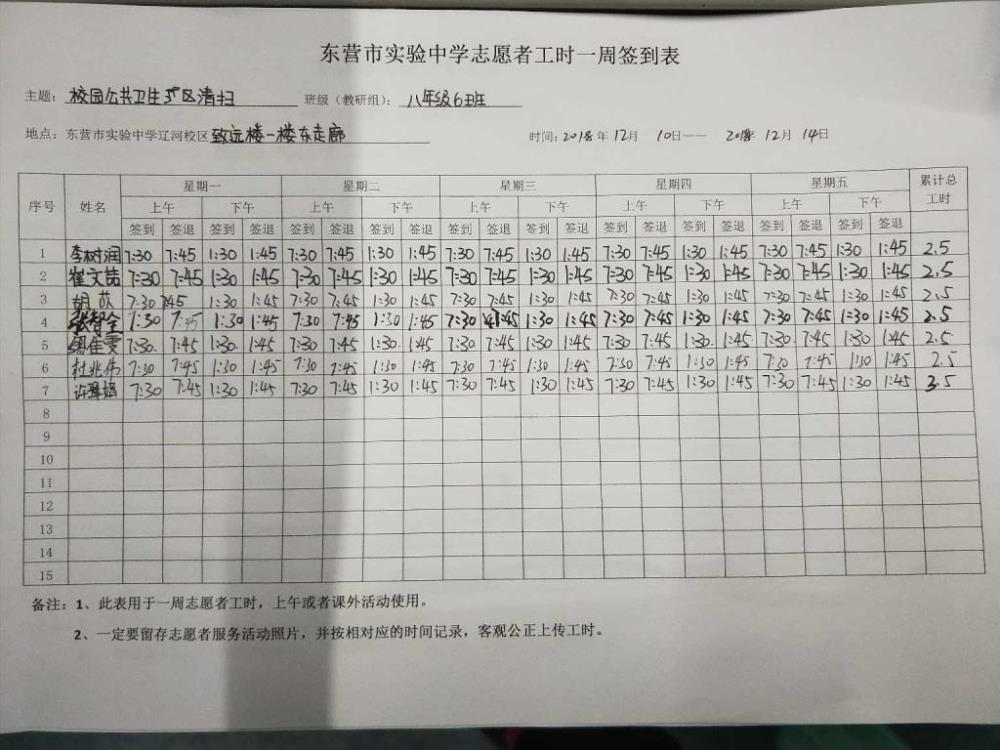 东营市实验中学志愿者工时一周签到表
主题: 校园公共卫生区清扫 班级（教研组）: 八年级6班
地点: 东营市实验中学辽河校区致远楼一楼东走廊 时间: 2018年12月10日——2018年12月14日
序号 姓名 星期一 星期二 星期三 星期四 星期五 累计总工时
上午 下午 上午 下午 上午 下午 上午 下午 上午 下午
签到 签退 签到 签退 签到 签退 签到 签退 签到 签退 签到 签退 签到 签退 签到 签退 签到 签退 签到 签退
1 李树润 7:30 7:45 1:30 1:45 7:30 7:45 1:30 1:45 7:30 7:45 1:30 1:45 7:30 7:45 1:30 1:45 7:30 7:45 1:30 1:45 2.5
2 崔文喆 7:30 7:45 1:30 1:45 7:30 7:45 1:30 1:45 7:30 7:45 1:30 1:45 7:30 7:45 1:30 1:45 7:30 7:45 1:30 1:45 2.5
3 胡 7:30 7:45 1:30 1:45 7:30 7:45 1:30 1:45 7:30 7:45 1:30 1:45 7:30 7:45 1:30 1:45 7:30 7:45 1:30 1:45 2.5
4 张智全 7:30 7:45 1:30 1:45 7:30 7:45 1:30 1:45 7:30 1:30 1:45 7:30 7:45 1:30 1:45 7:30 7:45 1:30 1:45 2.5
5 佳雯 7:30 7:45 1:30 1:45 7:30 7:45 1:30 1:45 7:30 7:45 1:30 1:45 7:30 7:45 1:30 1:45 7:30 7:45 1:30 1:45 2.5
6 杜兆伟 7:30 7:45 1:30 1:45 7:30 7:45 1:30 1:45 7:30 7:45 1:30 1:45 7:30 7:45 1:30 1:45 7:30 7:45 1:30 1:45 2.5
7 许娟 7:30 7:45 1:30 1:45 7:30 7:45 1:30 1:45 7:30 7:45 1:30 1:45 7:30 7:45 1:30 1:45 7:30 7:45 1:30 1:45 .5
8
9
10
11
12
13
14
15
备注: 1、此表用于一周志愿者工时，上午或者课外活动使用。
2、一定要留存志愿者服务活动照片，并按相对应的时间记录，客观公正上传工时。